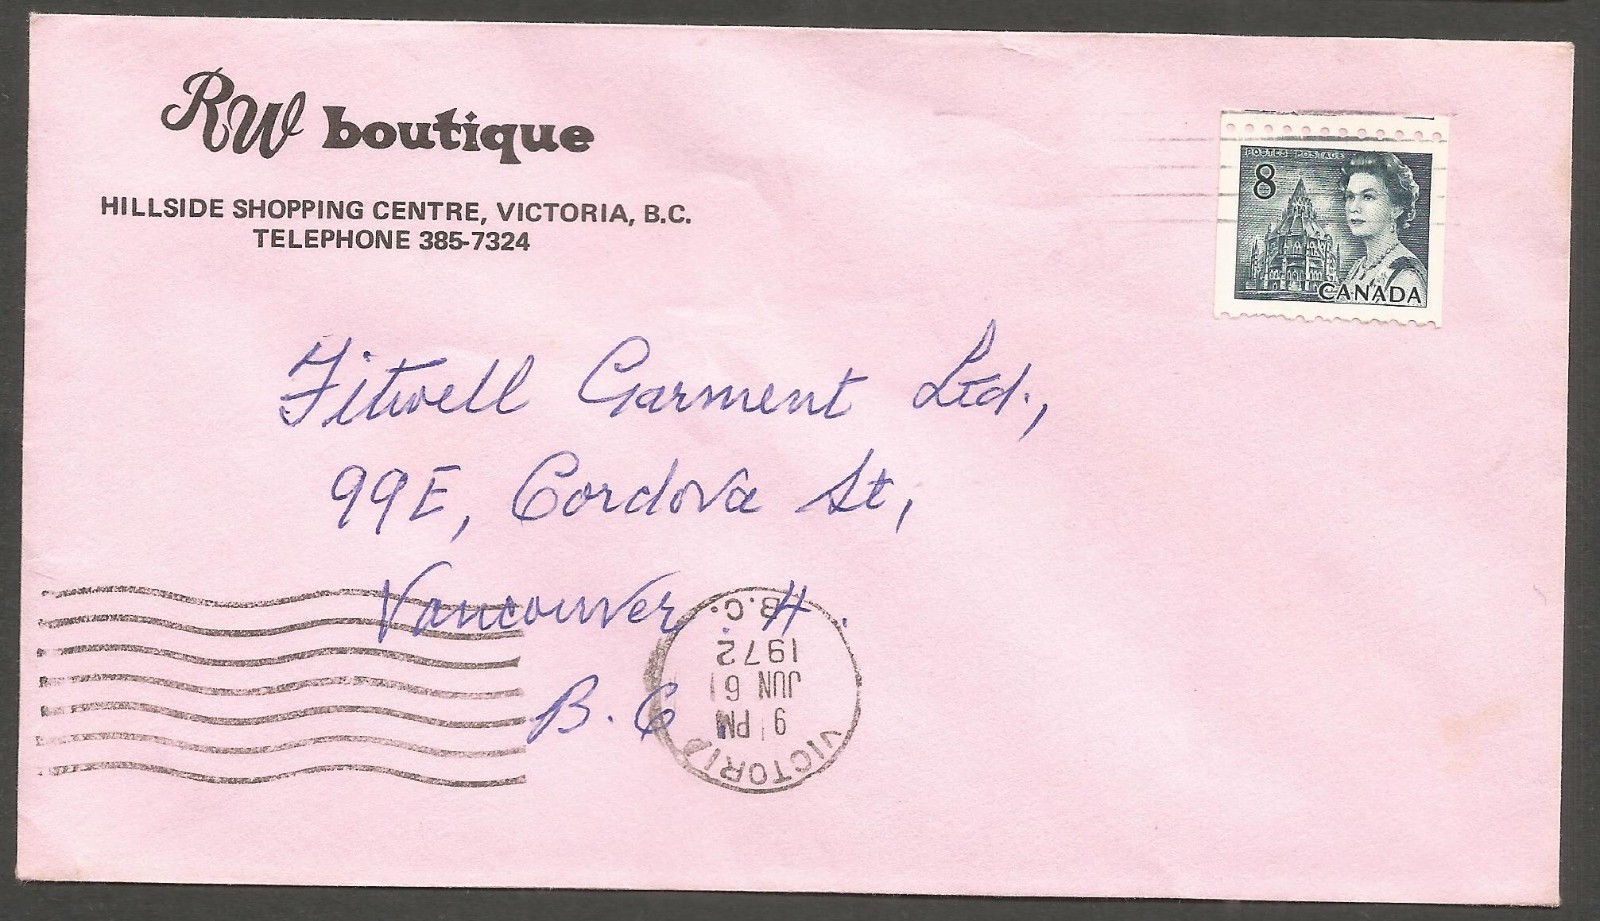 RW boutique
HILLSIDE SHOPPING CENTRE, VICTORIA, B.C.
TELEPHONE 385-7324
POSTES POSTAGE
8
CANADA
Fitwell Garment Ltd.,
99E, Cordova St,
Vancouver. 4.
B.C
VICTORIA
9 PM
JUN 6
1972
B.C.